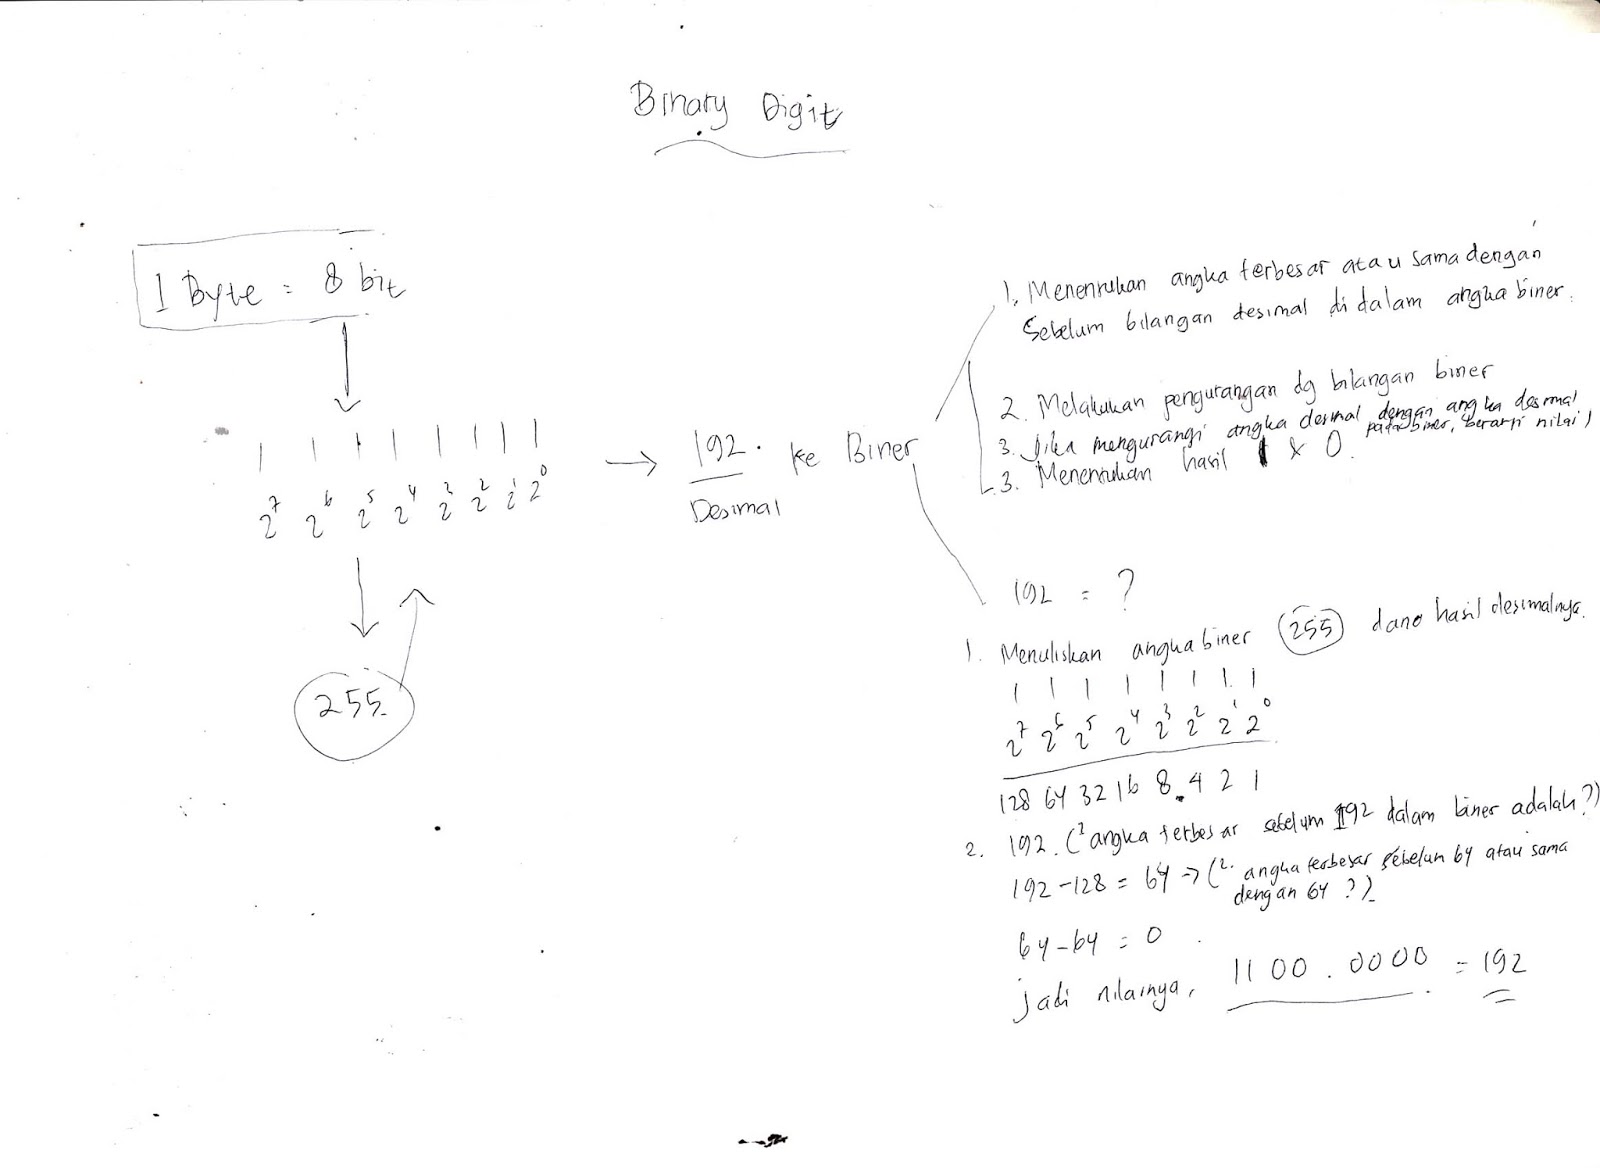 Binary Digit
1 Byte = 8 bit
1 1 1 1 1 1 1 1
2⁷ 2⁶ 2⁵ 2⁴ 2³ 2² 2¹ 2⁰
255
192. ke Biner
Desimal
1. Menentukan angka terbesar atau sama dengan
Sebelum bilangan desimal di dalam angka biner.
2. Melakukan pengurangan dg bilangan biner
3. Jika mengurangi angka desimal dengan angka desimal
pada biner, berarti nilai 1
3. Menentukan hasil 1 & 0.
192 = ?
1. Menuliskan angka biner 255 dano hasil desimalnya.
1 1 1 1 1 1 1 1
2⁷ 2⁶ 2⁵ 2⁴ 2³ 2² 2¹ 2⁰
128 64 32 16 8 4 2 1
2. 192. (² angka terbesar sebelum 192 dalam biner adalah?)
192 - 128 = 64 → (². angka terbesar sebelum 64 atau sama
dengan 64 ?).
64 - 64 = 0
jadi nilainya, 1100.0000 = 192